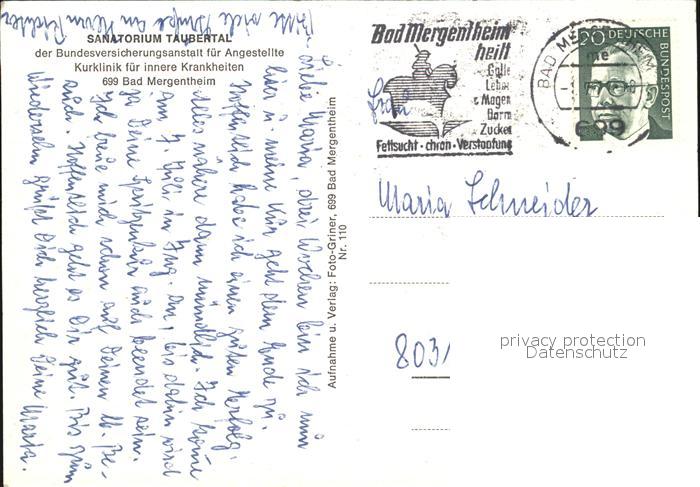 Bitte viele Grüße an Herrn Richter
SANATORIUM TAUBERTAL
der Bundesversicherungsanstalt für Angestellte
Kurklinik für innere Krankheiten
699 Bad Mergentheim
Liebe Maria, drei Wochen bin ich nun
hier u. meine Kur geht dem Ende zu.
Hoffentlich habe ich einen guten Erfolg.
Alles nähere dann mündlich. Ich komme
am 7. Juli in Ing. an, bis dahin wird
ja Deine Spritzenkur auch beendet sein.
Ich freue mich schon auf Deinen lb. Be-
such. Hoffentlich geht es Dir gut. Bis zum
Wiedersehn grüßt Dich herzlich Deine Marta.
Aufnahme u. Verlag: Foto-Griner, 699 Bad Mergentheim
Nr. 110
Bad Mergentheim
heilt
Galle
Leber
Magen
Darm
Zucker
Fettsucht · chron. Verstopfung
BAD MERGENTHEIM
me
699
20 DEUTSCHE
BUNDESPOST
Frau
Maria Schneider
803
privacy protection
Datenschutz